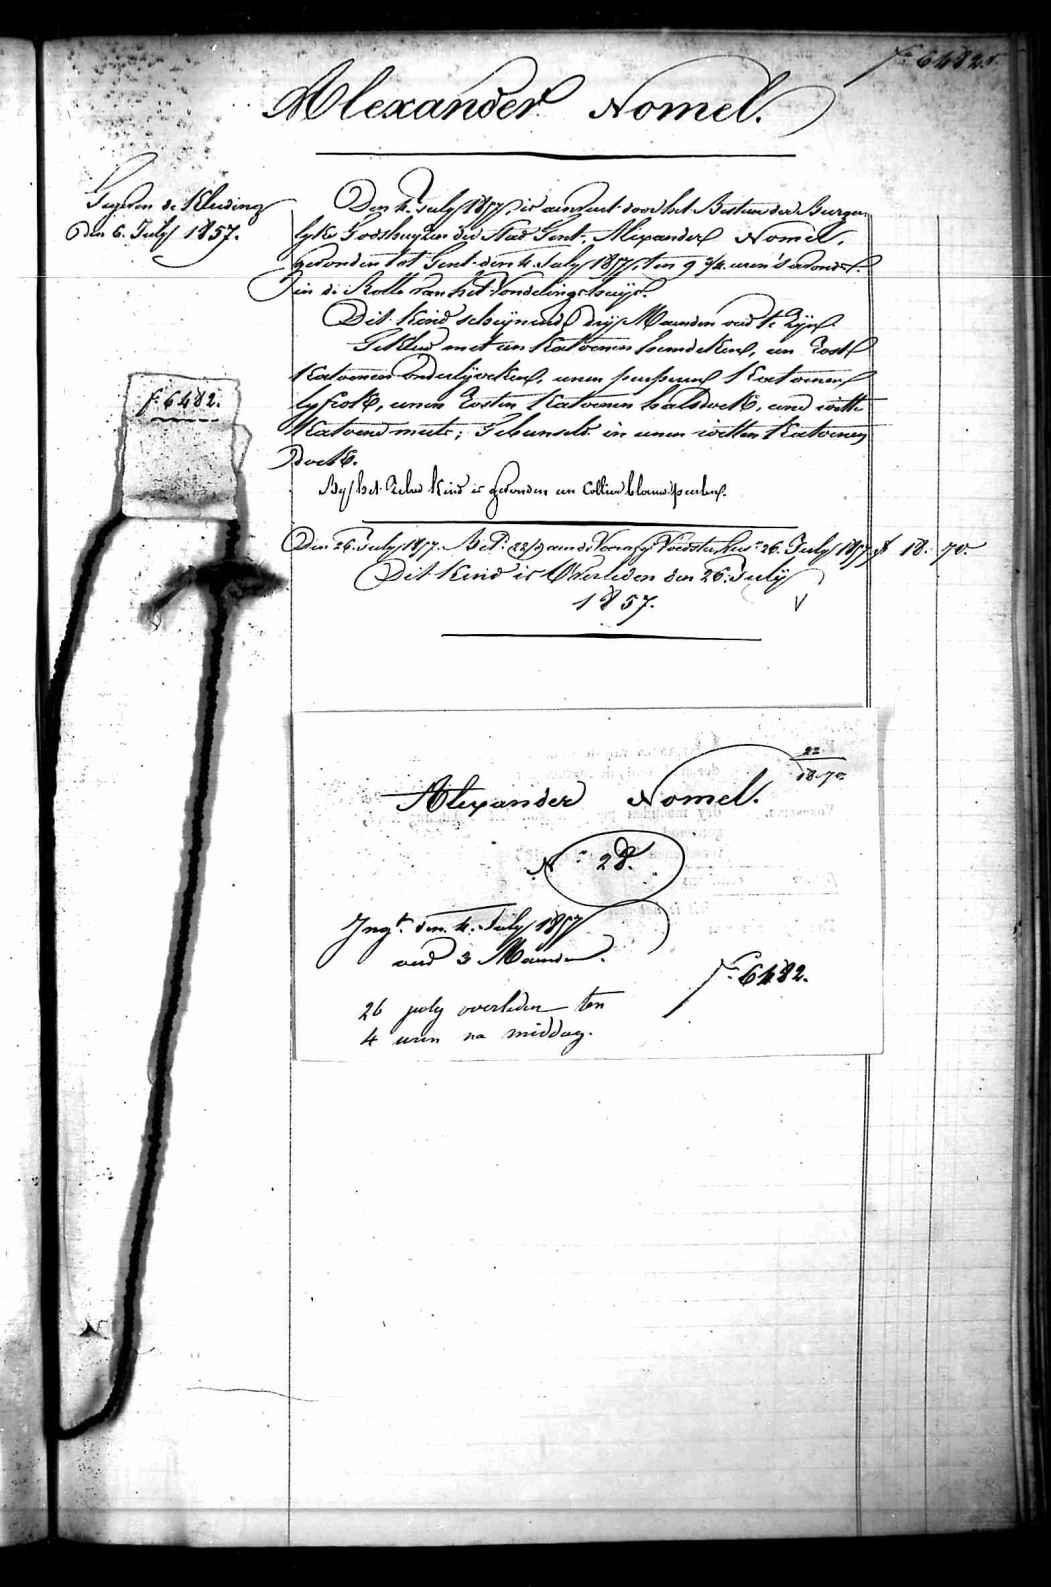 fo 6482.
Alexander Nomel.
Gegeven de Kleeding
den 6. July 1857.
Den 4. July 1857, is aenveerd door het Bestuer der Burger
lyke Godshuyzen der Stad Gent, Alexander Nomel,
gevonden tot Gent den 4. July 1857, ten 9 3/4 uren 's avonds
in de Rolle van het Vondelingshuys.
Dit Kind schynende dry Maenden oud te zyn.
Gekleed met een Katoenen hemdeken, een Roode
Katoenen onderlyveken, eenen purperen Katoenen
lyfrok, eenen Rosten Katoenen halsdoek, eene witte
Katoene muts; Gebunseld in eenen witten Katoenen
doek.
By het zelve Kind is gevonden een Collier blauwe peerlen.
f. 6482.
Den 26. July 1857. Bet: 22/9 aen de Voorzy Voedster 26. July 1857 f 18. 70.
Dit Kind is Overleden den 26. July
1857.
22
18.70
Alexander Nomel.
No 28.
Ingt. den 4. July 1857
oud 3 Maenden.
fo 6482.
26 july overleden ten
4 uren na middag.